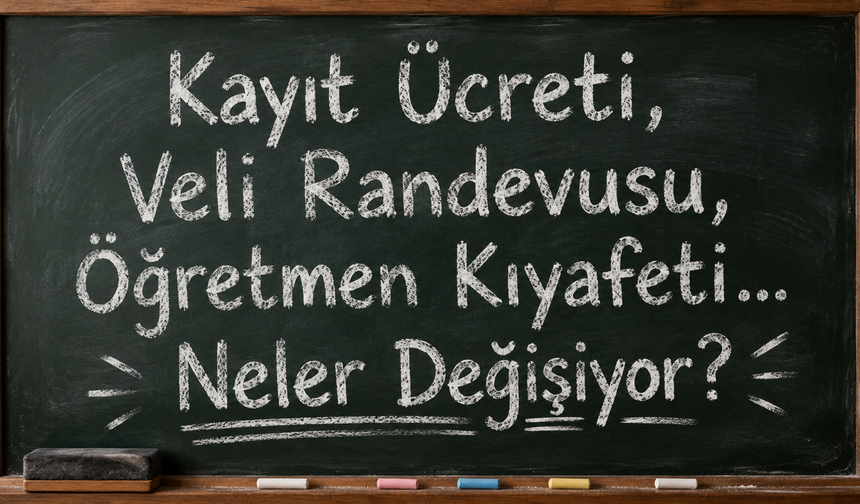 Kayıt Ücreti,
Veli Randevusu,
Öğretmen Kıyafeti...
Neler Değişiyor?